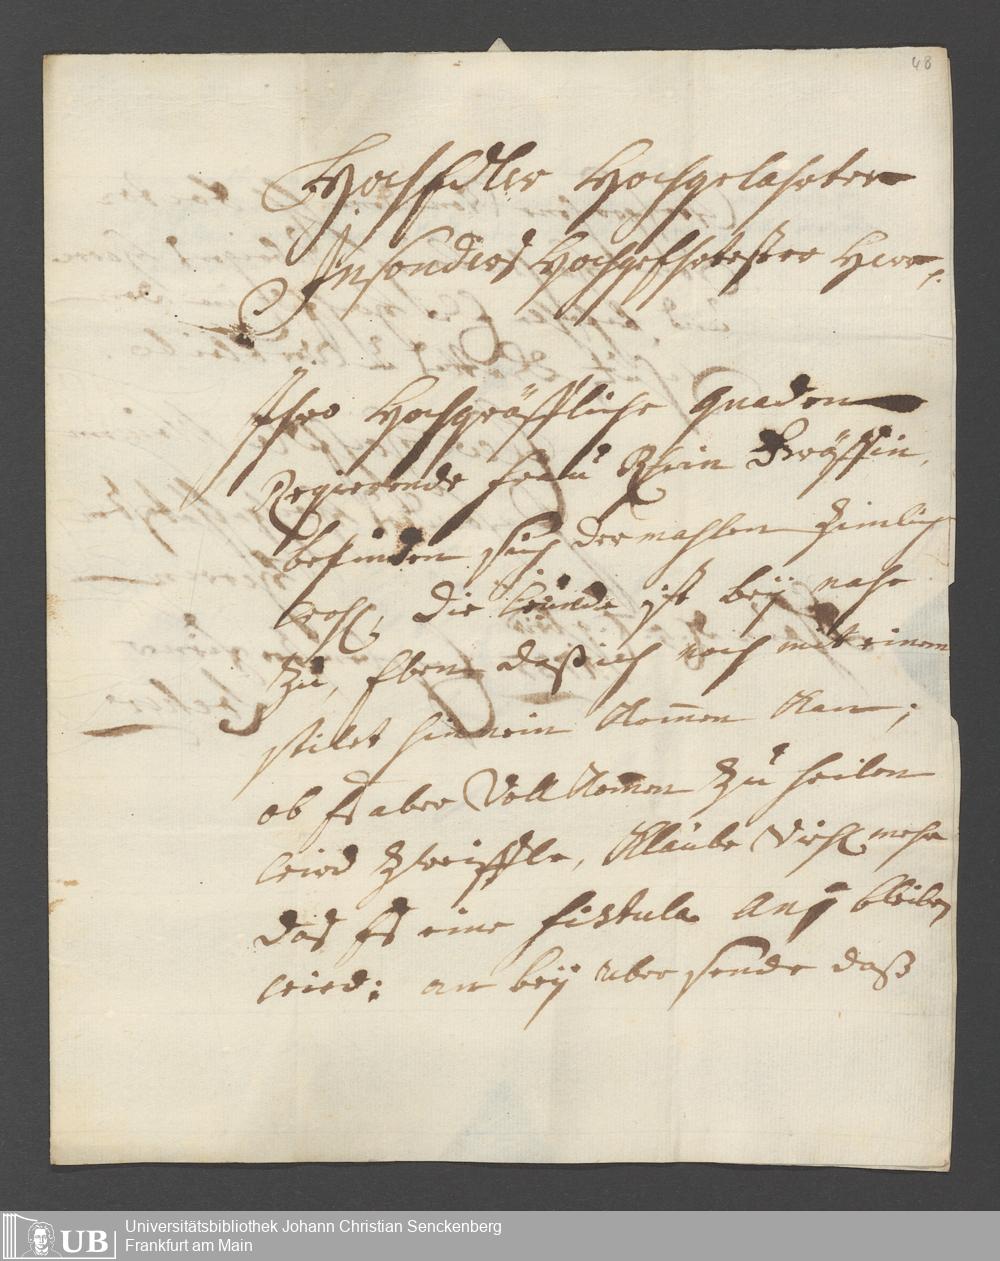 48
HochEdler Hochgelahrter
Insonders Hochgeehrtester Herr,
Ihro Hochgräffliche gnaden
Regierende frau Rhein Gräffin,
befinden sich dermahlen zimlich
wohl, die wunde ist beÿ nahe
zu, Eben daß ich noch mit einem
stilet hinnein Kommen Kan;
ob Es aber VollKommen zu heilen
wird zweiffle, Klaube Viehl mehr
das Es eine fistula ani bleiben
wird: an beÿ uber sende daß
UB
Universitätsbibliothek Johann Christian Senckenberg
Frankfurt am Main